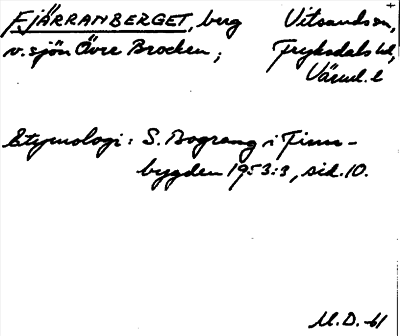 FJÄRRANBERGET, berg Vitsands sn,
v. sjön Övre Brocken; Fryksdals hd,
Värml. l
Etymologi: S. Bograng i Finn-
bygden 1953:3, sid. 10.
M.D. -61